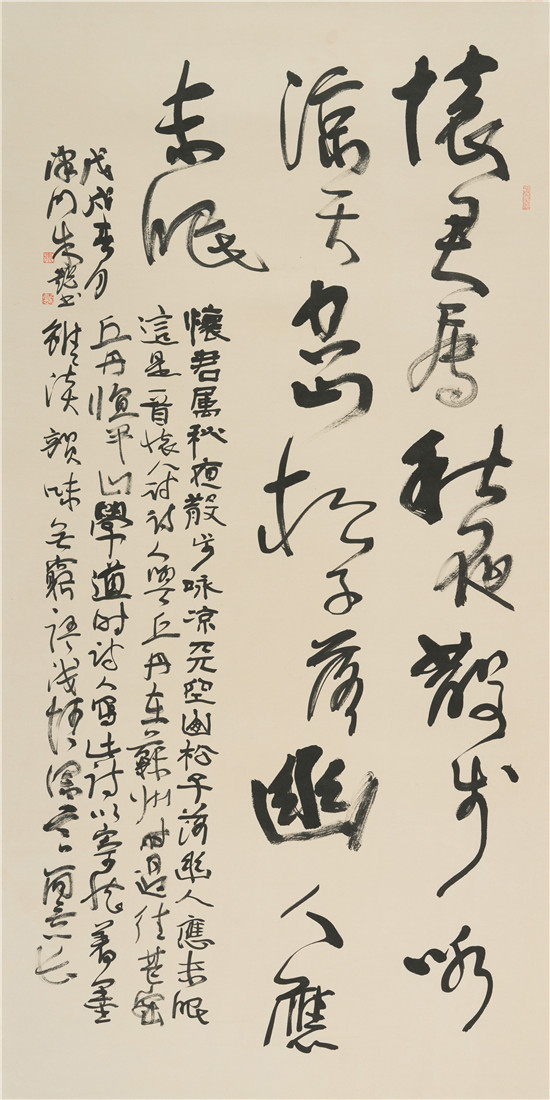 懷君屬秋夜散步咏
涼天空山松子落幽人應
未眠
懷君属秋夜散步咏凉天空山松子落幽人應未眠
這是一首懷人詩詩人與丘丹在蘇州時過往甚密
丘丹臨平山學道時詩人寫此詩以寄懷着墨
雖淡韻味無窮語淺情深言簡意长
戊戌春月
津門朱懿书